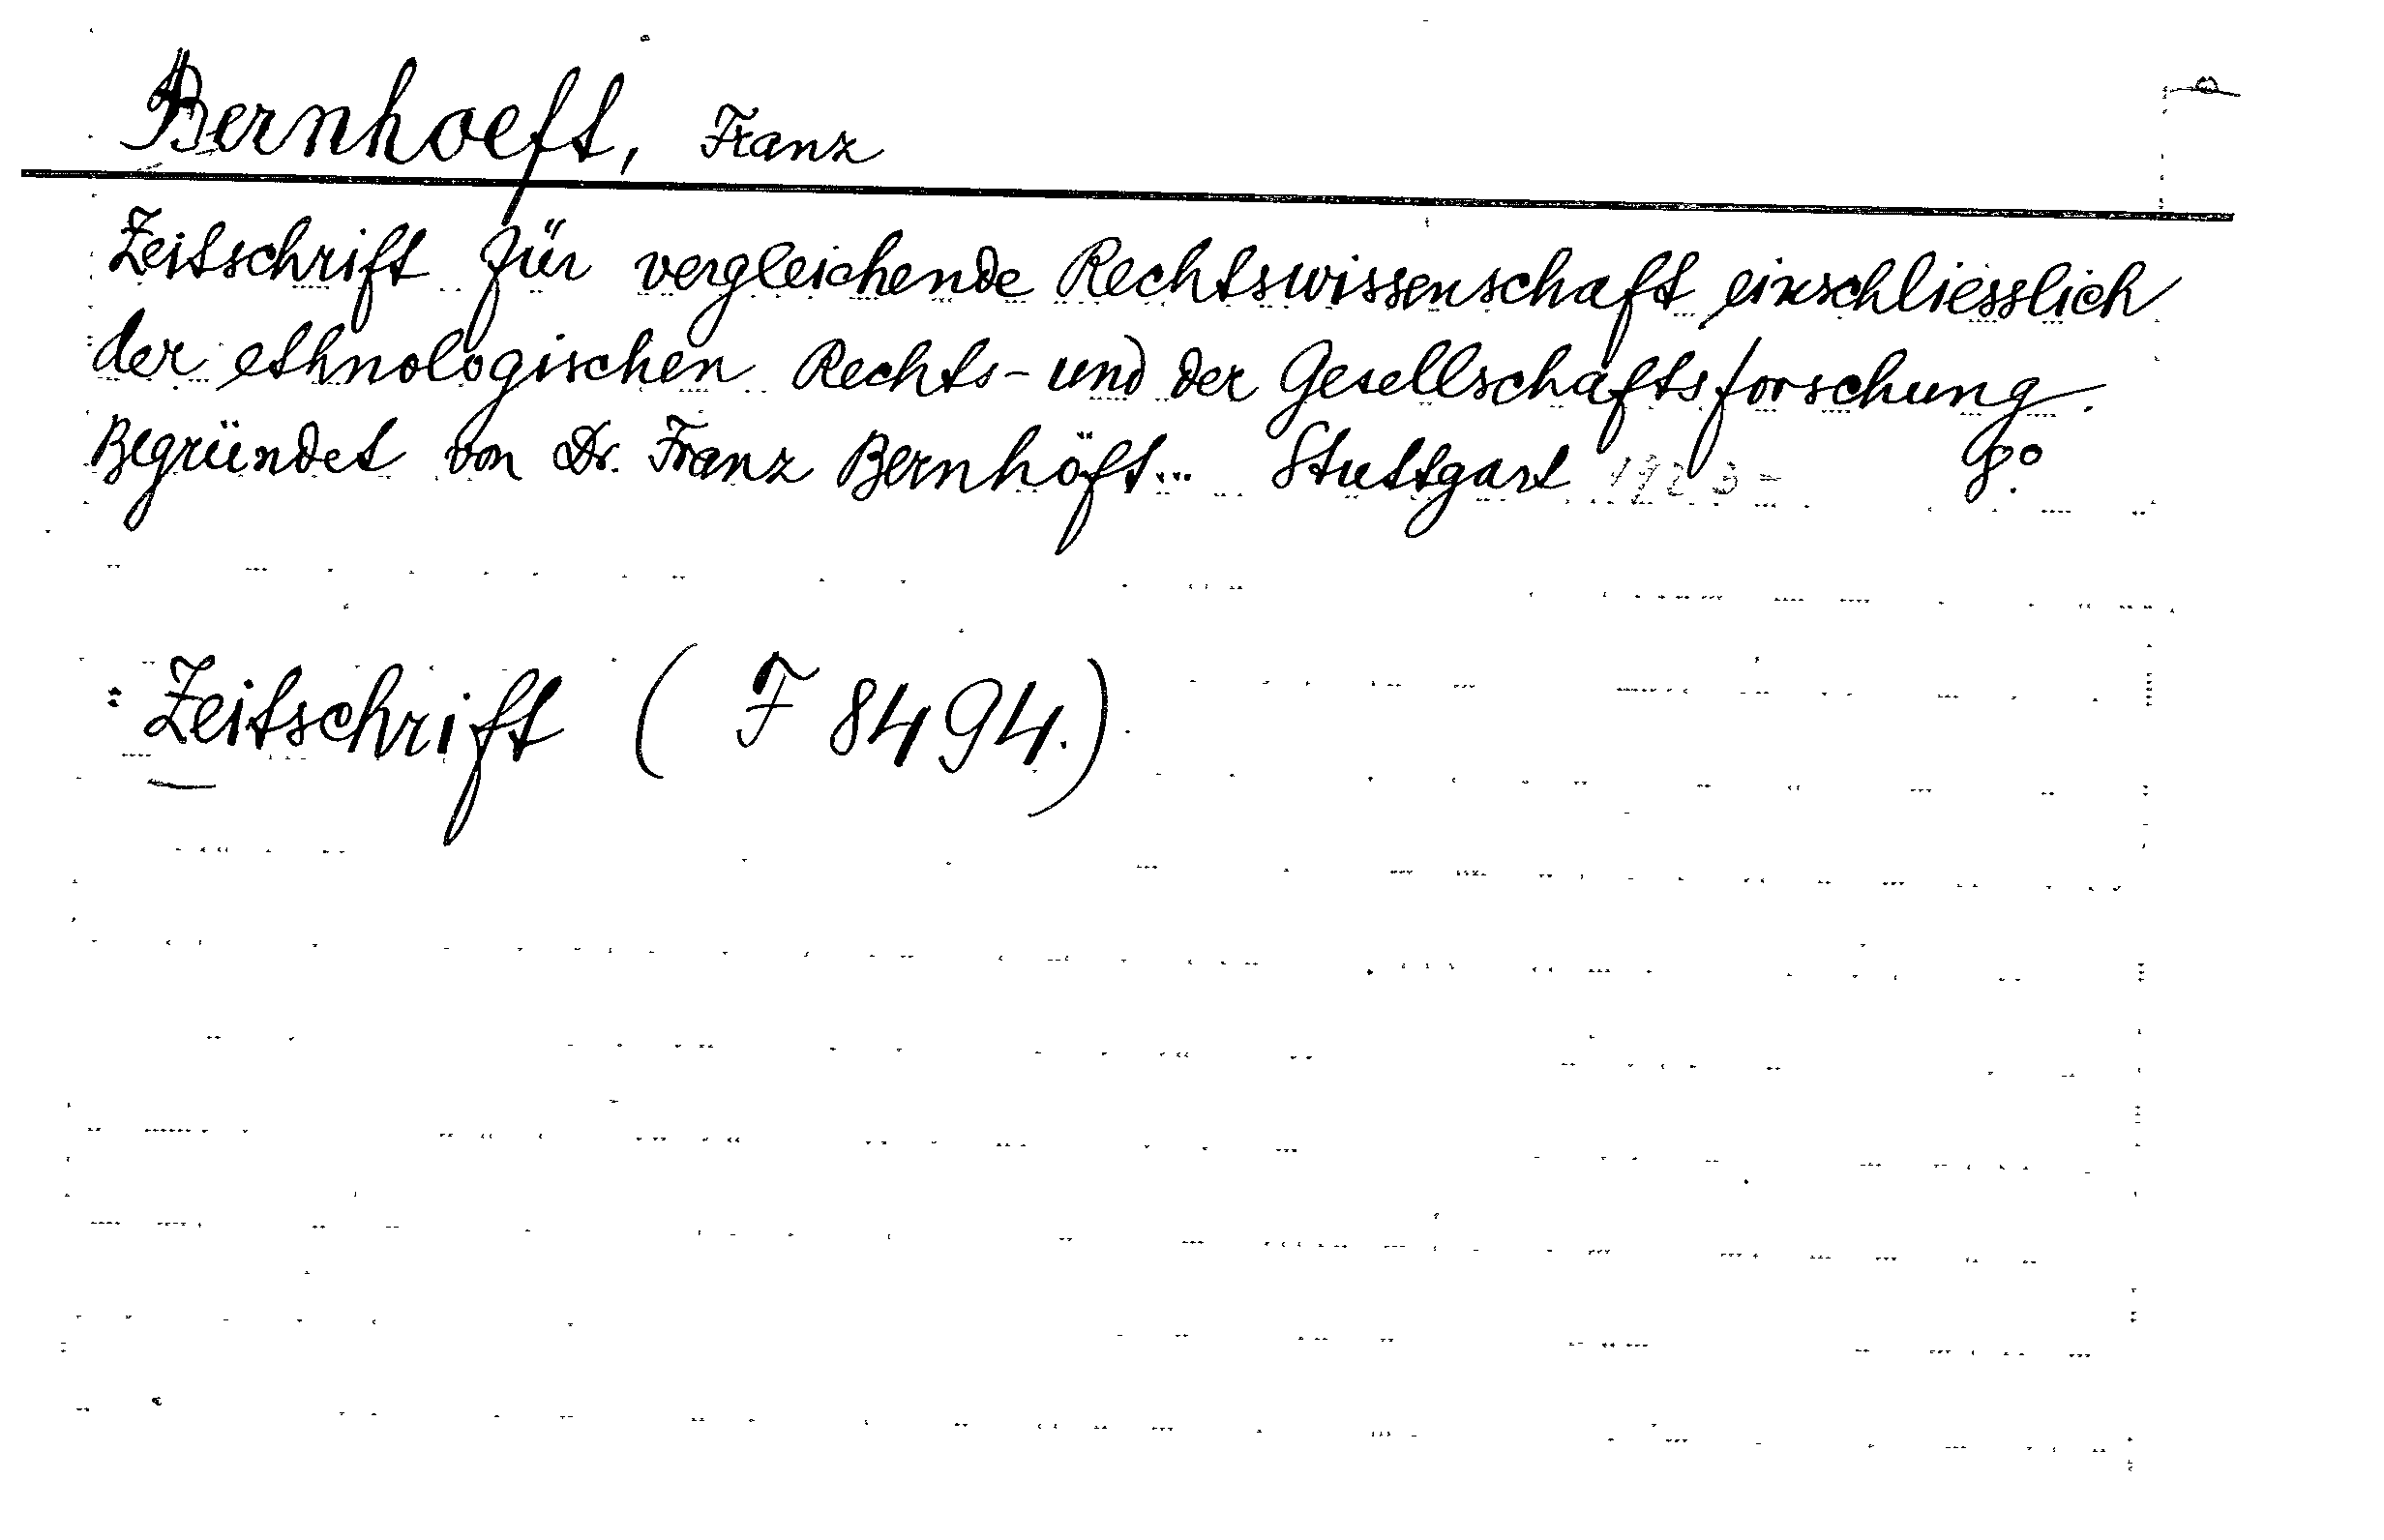 Bernhoeft, Franz
Zeitschrift für vergleichende Rechtswissenschaft einschliesslich
der ethnologischen Rechts- und der Gesellschaftsforschung.
Begründet von Dr. Franz Bernhöft... Stuttgart 1923= 8°.
: Zeitschrift (F 8494.)